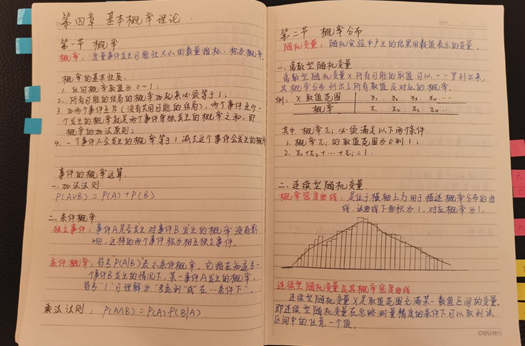 第四章 基本概率理论
第一节 概率
概率：度量事件发生可能性大小的数量指标，称为概率.
概率的基本性质
1. 任何概率取值在0~1.
2. 所有可能的结局的概率加起来必须等于1;
3. 如两个事件互斥(没有共同可能的结局)，两个事件至少一
个发生的概率就是两个事件单独发生的概率之和，即
概率的加法原则;
4. 一个事件不会发生的概率等于1减去这个事件会发生的概率
事件的概率运算.
一. 加法法则
P(A∪B) = P(A)+P(B)
二. 条件概率
独立事件：事件A是否发生对事件B发生的概率没有影
响，这样的两个事件称为相互独立事件.
条件概率：符号P(A|B)表示条件概率，它指在知道另一
个事件B发生的情况下，某一事件A发生的概率.
符号"|"可理解为"考虑到"或"在…条件下".
乘法法则：P(A∩B) = P(A)·P(B|A)
第二节 概率分布
随机变量：随机实验中产生的结果用数值表示的变量.
一. 离散型随机变量
离散型随机变量X所有可能的取值可以一一罗列出来.
其概率分布列出了所有取值及对应的概率.
例: X取值范围 x₁ x₂ x₃ x₄ ...
概率 z₁ z₂ z₃ z₄ ...
其中概率z₁必须满足以下两个条件
1. 概率z₁的取值范围为0到1;
2. z₁+z₂+…+z₁=1.
二. 连续型随机变量
概率密度曲线：是位于横轴上方用于描述概率分布的曲
线，该曲线下面积为1，对应概率为1.
连续型随机变量及其概率密度曲线
连续型随机变量X是取值范围充满某一数值区间的变量，
即连续型随机变量在忽略测量精度的条件下可以取到该
区间中的任意一个值.